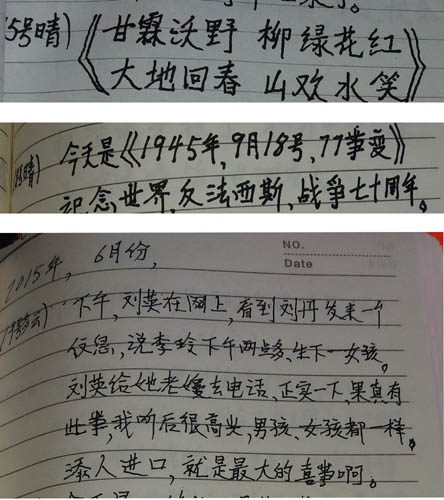 5号晴)《甘霖沃野 柳绿花红
大地回春 山欢水笑》
今天是《1945年,9月18号,77事变》
记念世界,反法西斯、战争七十周年。
NO.
Date
2015年, 6月份,
下午,刘英在网上,看到刘丹发来一个
信息,说李玲下午两点多、生下一女孩。
刘英给她老嫂去电话、正实一下,果真有
此事,我听后很高兴,男孩、女孩都一样。
添人进口,就是最大的喜事啊。